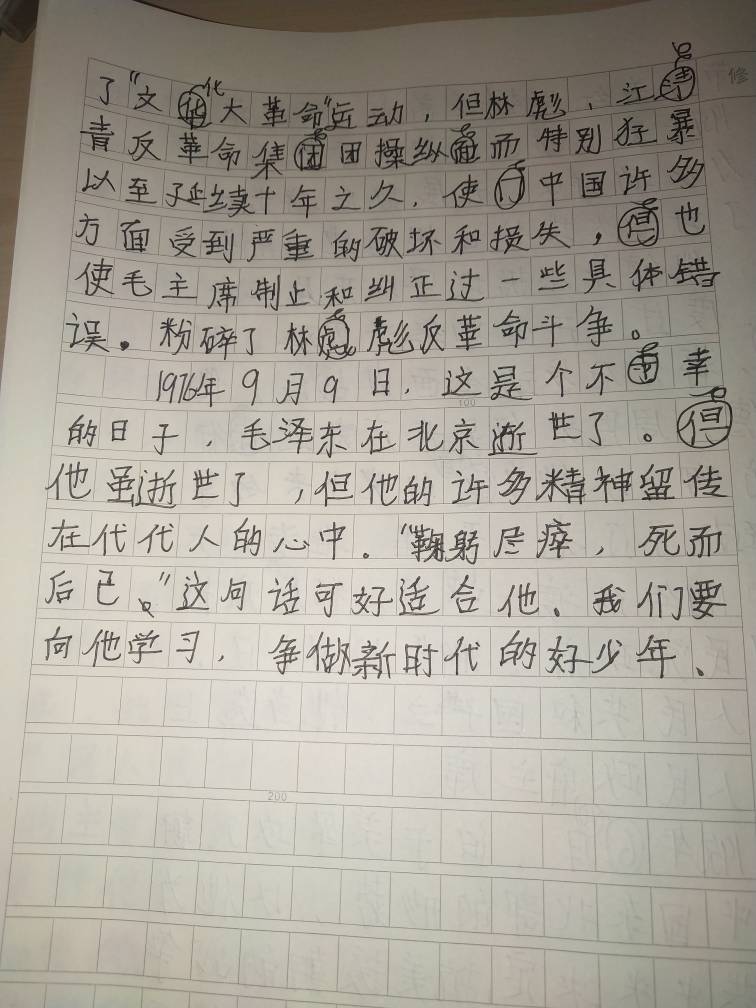 了“文化大革命”运动，但林彪、江
青反革命集团操纵而特别狂暴
以至延续十年之久，使中国许多
方面受到严重的破坏和损失，也
使毛主席制止和纠正过一些具体错
误。粉碎了林彪反革命斗争。
1976年9月9日，这是个不幸
的日子，毛泽东在北京逝世了。
他虽逝世了，但他的许多精神留传
在代代人的心中。“鞠躬尽瘁，死而
后已。”这句话可好适合他。我们要
向他学习，争做新时代的好少年、
100
200
修